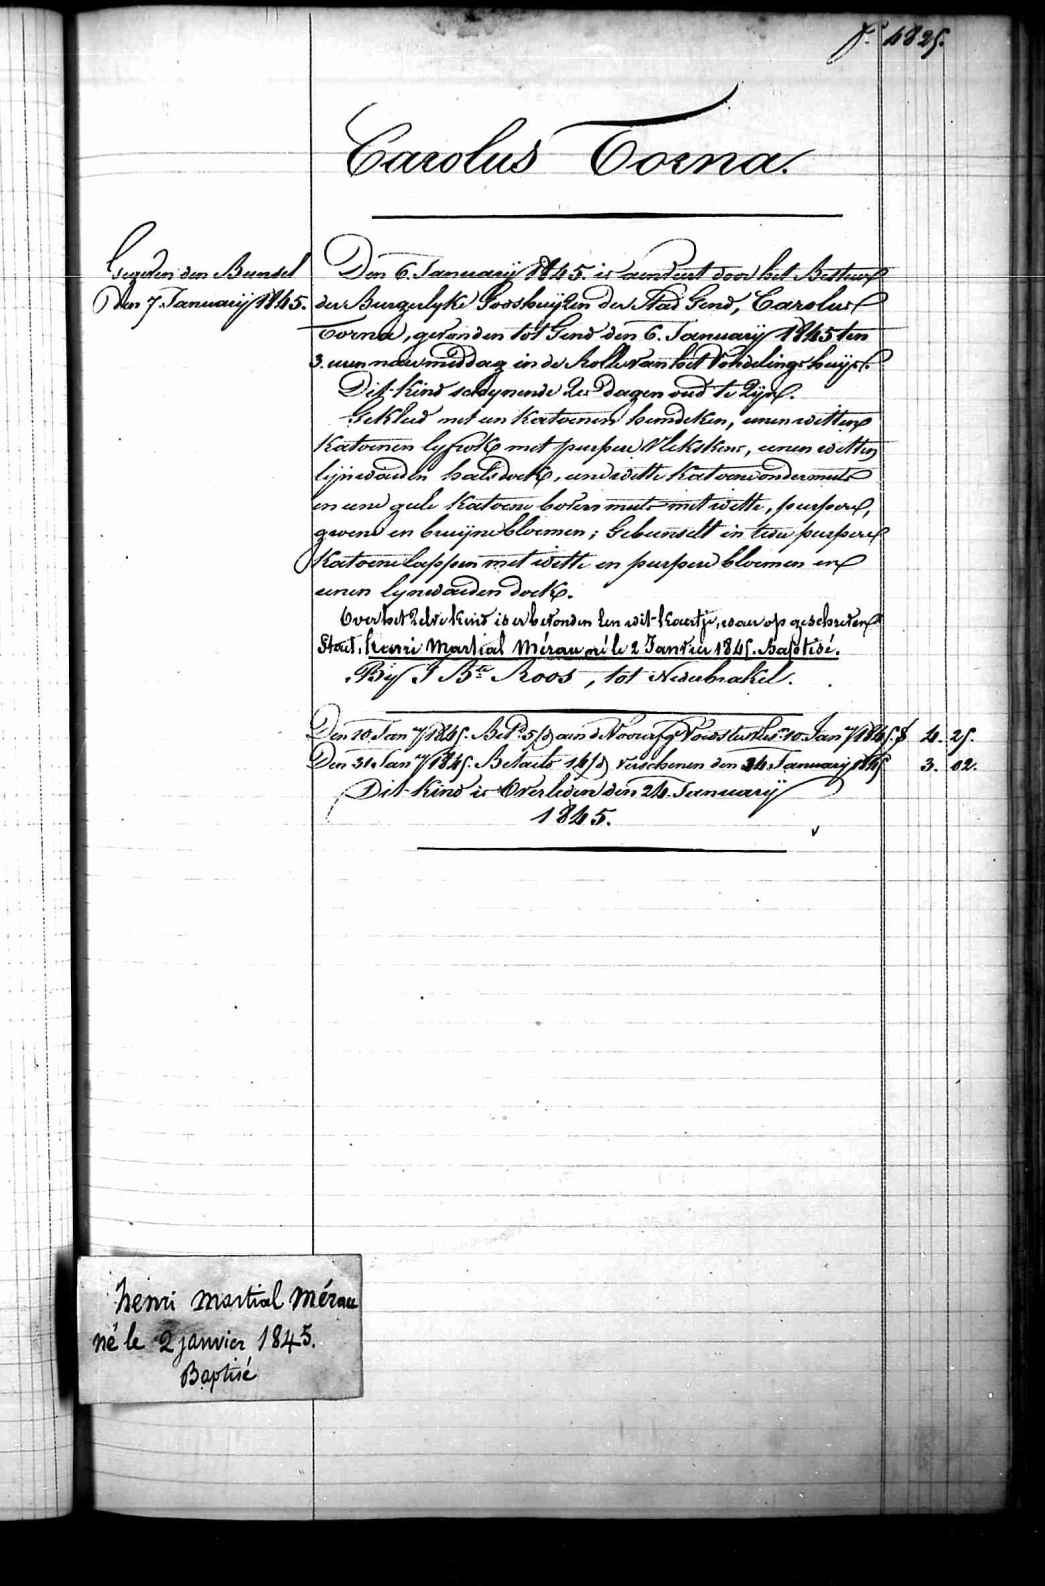 f. 1825.
Carolus Torna.
Gegeven den Bunsel
Den 7. Januarÿ 1845.
Den 6. Januarÿ 1845. is aenveert door het Bestuur
der Burgerlyke Godshuÿzen der Stad Gend, Carolus
Torna, gevonden tot Gend den 6. Januarÿ 1845 ten
3. uren naermiddag in de Rolle van het Vondelingshuÿs.
Dit Kind schÿnende 2er Dagen oud te Zÿn.
Gekleed met een Katoenen hemdeken, eenen witten
Katoenen lyfrok met purpere Vlekskens, eenen witten
lynwaeden halsdoek, eene witte Katoene ondermuts
en eene geele Katoene bovenmuts met witte, purpere,
groene en bruÿne bloemen; Gebunselt in twee purpere
Katoene lappen met witte en purpere bloemen en
eenen lynwaeden doek.
Over het Zelve kind is er bevonden een wit kaertje, waer op geschreven
Staet, henri Martial Mérau né le 2 Janvier 1845. Baptisé.
Bÿ J Bte Roos, tot Nederbrakel.
Den 10 Jan 1845. Bet. 5 aen de 10. Jan 1845. f 4. 25.
Den 31 Jan 1845. Betaelt 14 verschenen den 24 Januarÿ 1845 3. 02.
Dit Kind is Overleden den 24. Januarÿ
1845.
henri martial Mérau
né le 2 janvier 1845.
Baptisé